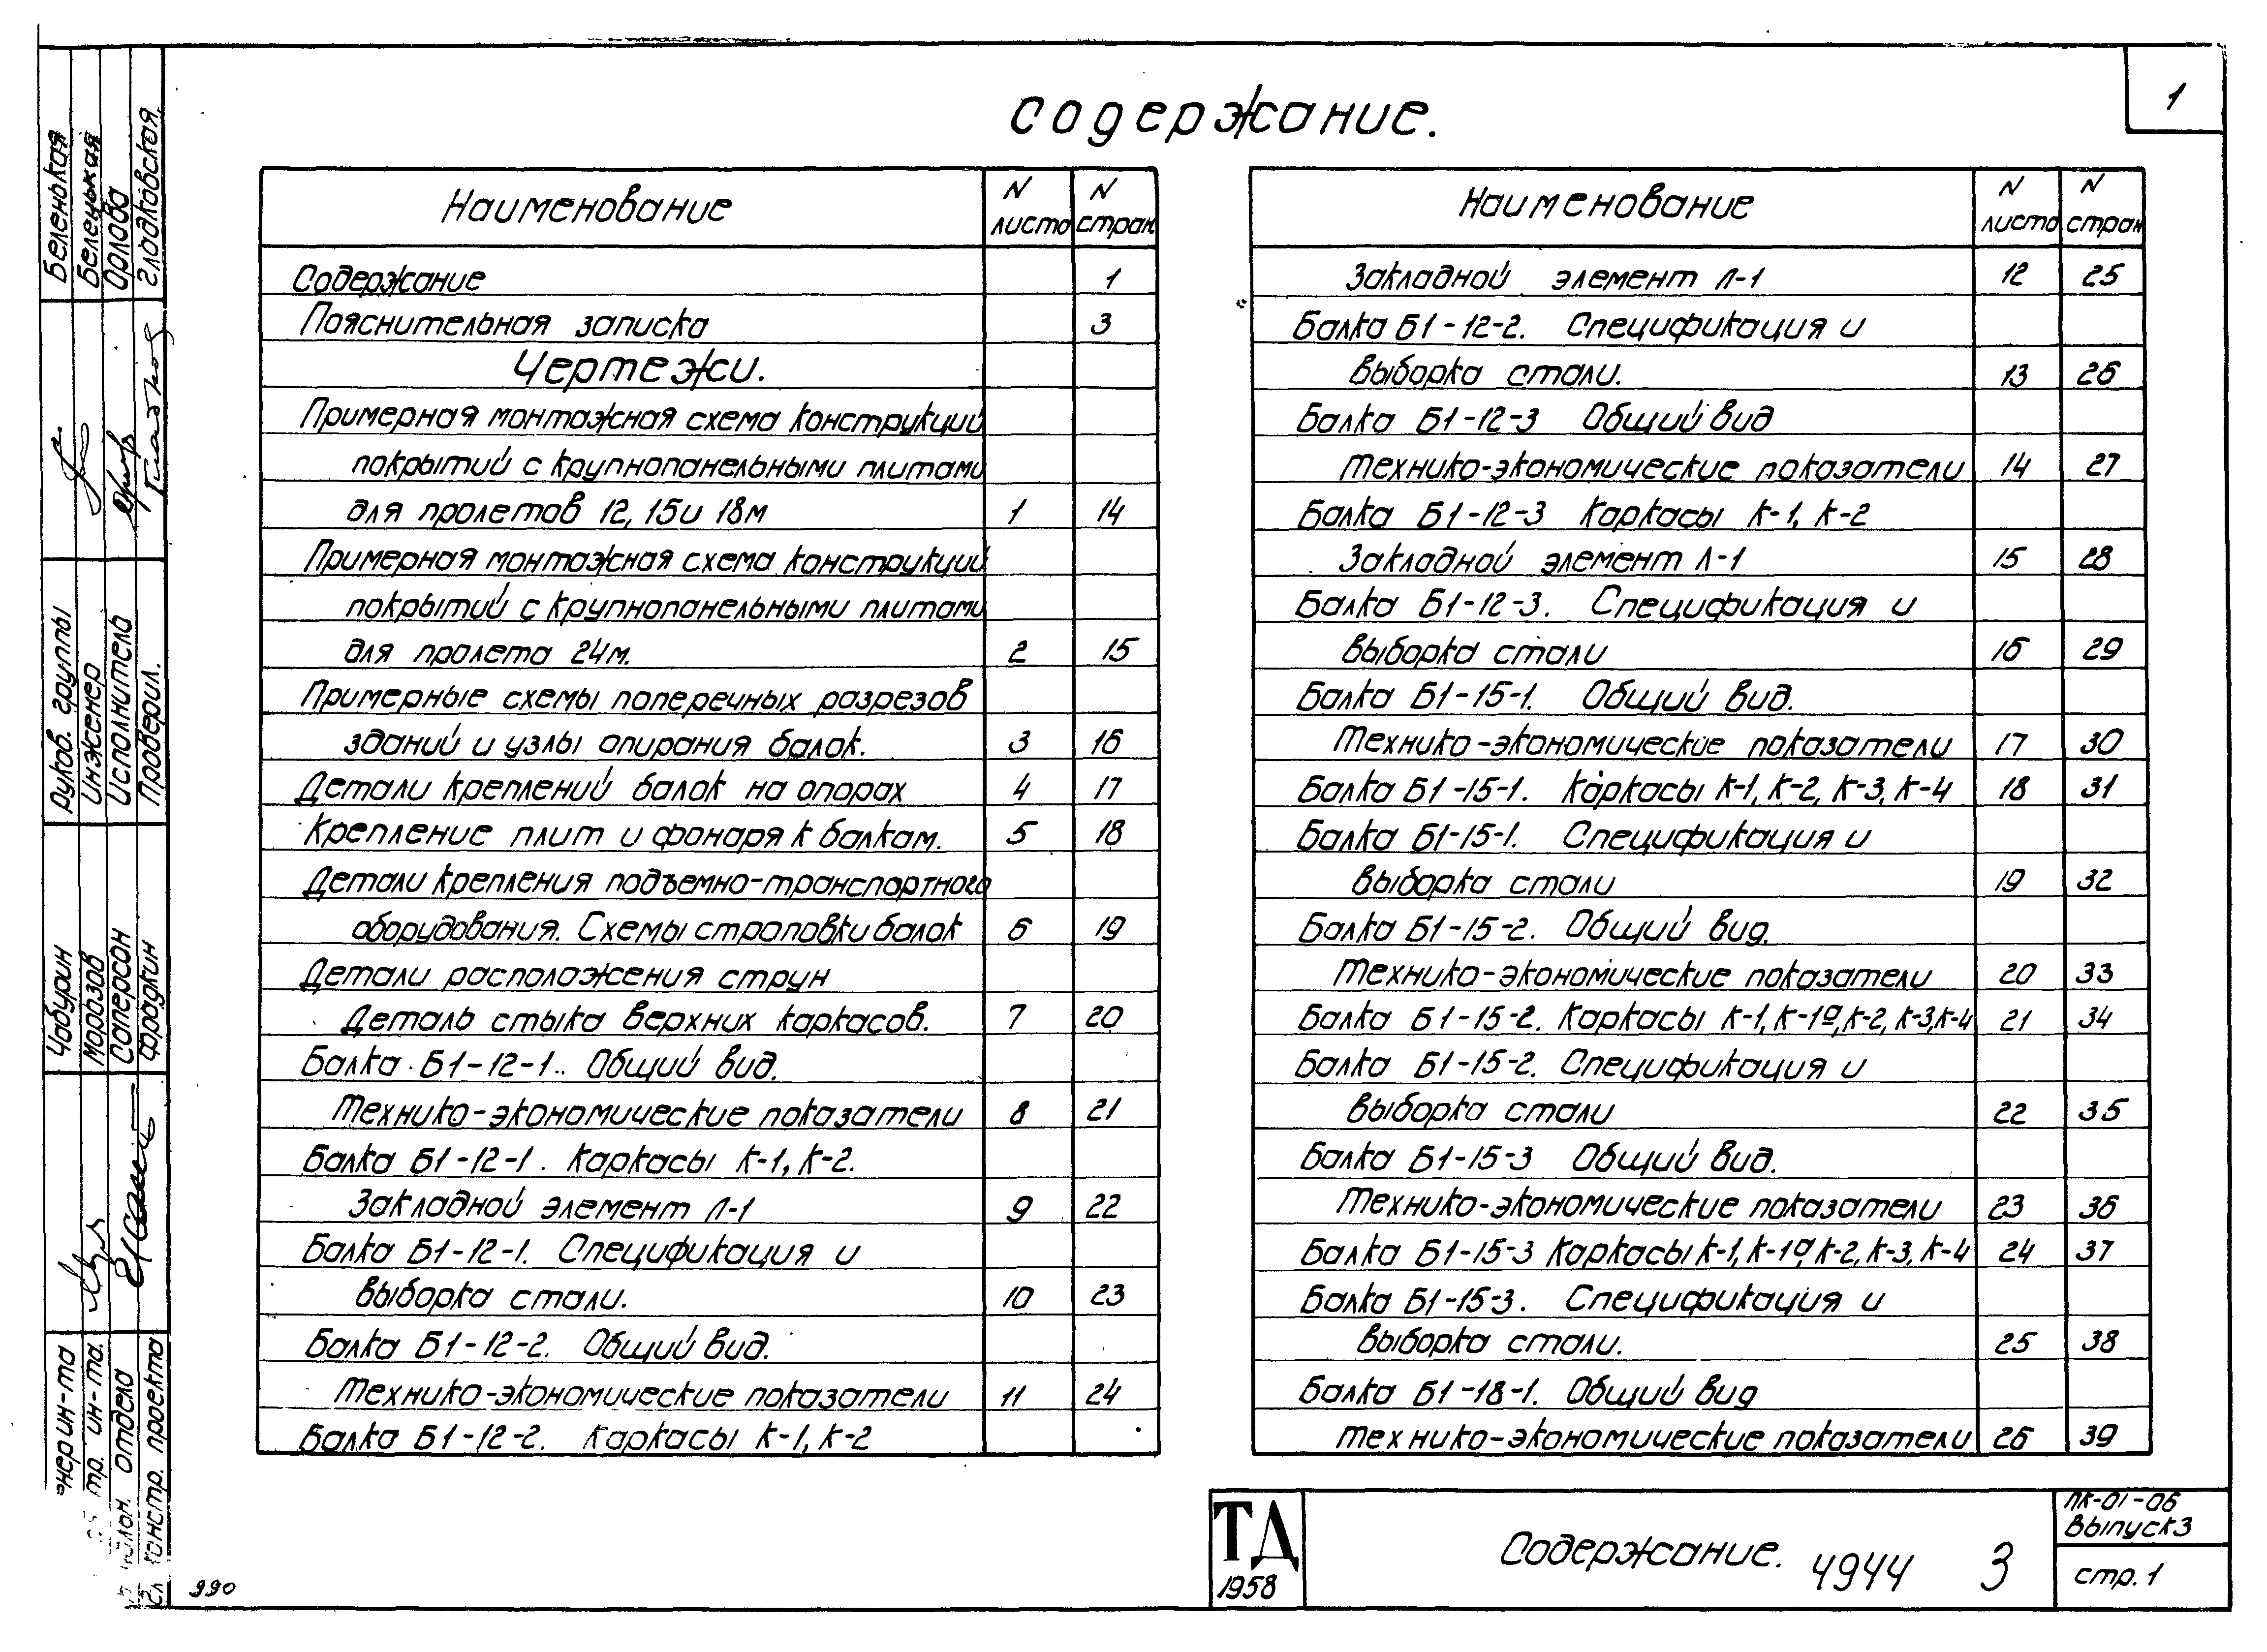 1
Содержание.
Наименование N листа N стран
Содержание 1
Пояснительная записка 3
Чертежи.
Примерная монтажная схема конструкций
покрытий с крупнопанельными плитами
для пролетов 12, 15 и 18м 1 14
Примерная монтажная схема конструкций
покрытий с крупнопанельными плитами
для пролета 24м. 2 15
Примерные схемы поперечных разрезов
зданий и узлы опирания балок. 3 16
Детали креплений балок на опорах 4 17
Крепление плит и фонаря к балкам. 5 18
Детали крепления подъемно-транспортного
оборудования. Схемы строповки балок 6 19
Детали расположения струн
Деталь стыка верхних каркасов. 7 20
Балка Б1-12-1. Общий вид.
Технико-экономические показатели 8 21
Балка Б1-12-1. Каркасы К-1, К-2.
Закладной элемент Л-1 9 22
Балка Б1-12-1. Спецификация и
выборка стали. 10 23
Балка Б1-12-2. Общий вид.
Технико-экономические показатели 11 24
Балка Б1-12-2. Каркасы К-1, К-2
Наименование N листа N стран
Закладной элемент Л-1 12 25
Балка Б1-12-2. Спецификация и
выборка стали. 13 26
Балка Б1-12-3 Общий вид
технико-экономические показатели 14 27
Балка Б1-12-3 Каркасы К-1, К-2
Закладной элемент Л-1 15 28
Балка Б1-12-3. Спецификация и
выборка стали 16 29
Балка Б1-15-1. Общий вид.
Технико-экономические показатели 17 30
Балка Б1-15-1. Каркасы К-1, К-2, К-3, К-4 18 31
Балка Б1-15-1. Спецификация и
выборка стали 19 32
Балка Б1-15-2. Общий вид.
Технико-экономические показатели 20 33
Балка Б1-15-2. Каркасы К-1, К-1а, К-2, К-3, К-4 21 34
Балка Б1-15-2. Спецификация и
выборка стали 22 35
Балка Б1-15-3 Общий вид.
Технико-экономические показатели 23 36
Балка Б1-15-3 Каркасы К-1, К-1а, К-2, К-3, К-4 24 37
Балка Б1-15-3. Спецификация и
выборка стали. 25 38
Балка Б1-18-1. Общий вид
технико-экономические показатели 26 39
ТД
1958
Содержание. 4944 3
ПК-01-06
Выпуск 3
стр. 1
990
Руков. группы Беленькая
Инженер Белецькая
Исполнитель Орлова
Проверил. Глодковская.
Чабурин
Морозов
Саперсон
Фрадкин
ин-та
ин-та.
отдела
констр. проекта